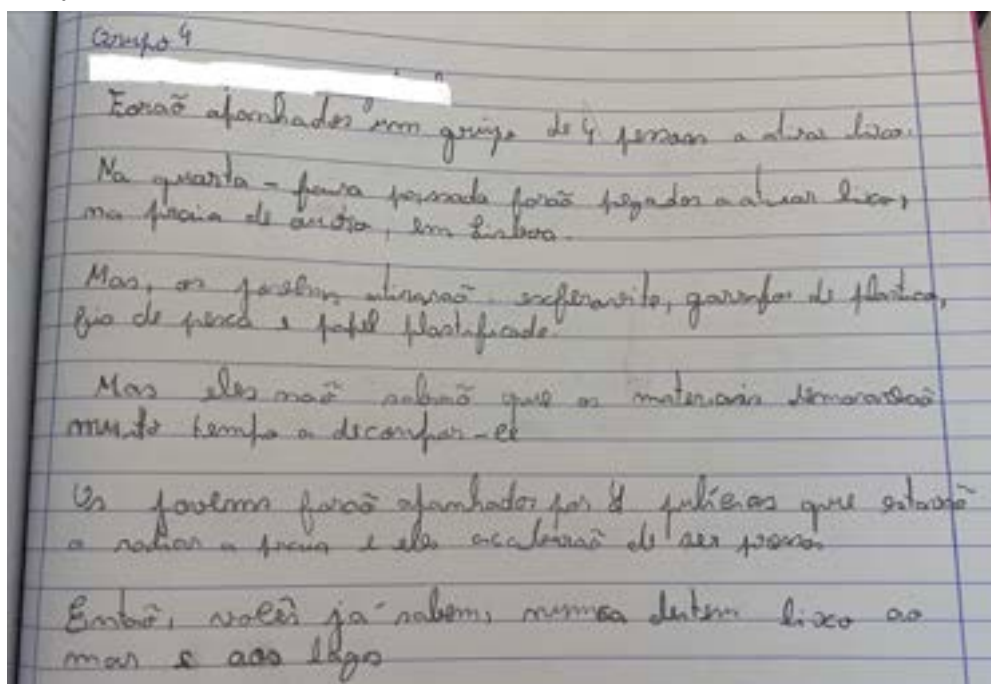 Grupo 4
Forão apanhados um grupo de 4 pessoas a atirar lixo.
Na quarta-feira passada forão pegados a atirar lixo,
na praia de, em Lisboa.
Mas, os jovens atirarão: esferovite, garrafas de plastico,
fio de pesca e papel plastificado.
Mas eles não sabião que os materiais demoravão
muito tempo a decompor-se
Os jovens forão apanhados por polícias que estavão
a rodiar a praia e eles acabarão de ser presos
Então, vocês já sabem, nunca deitem lixo ao
mar e aos lagos